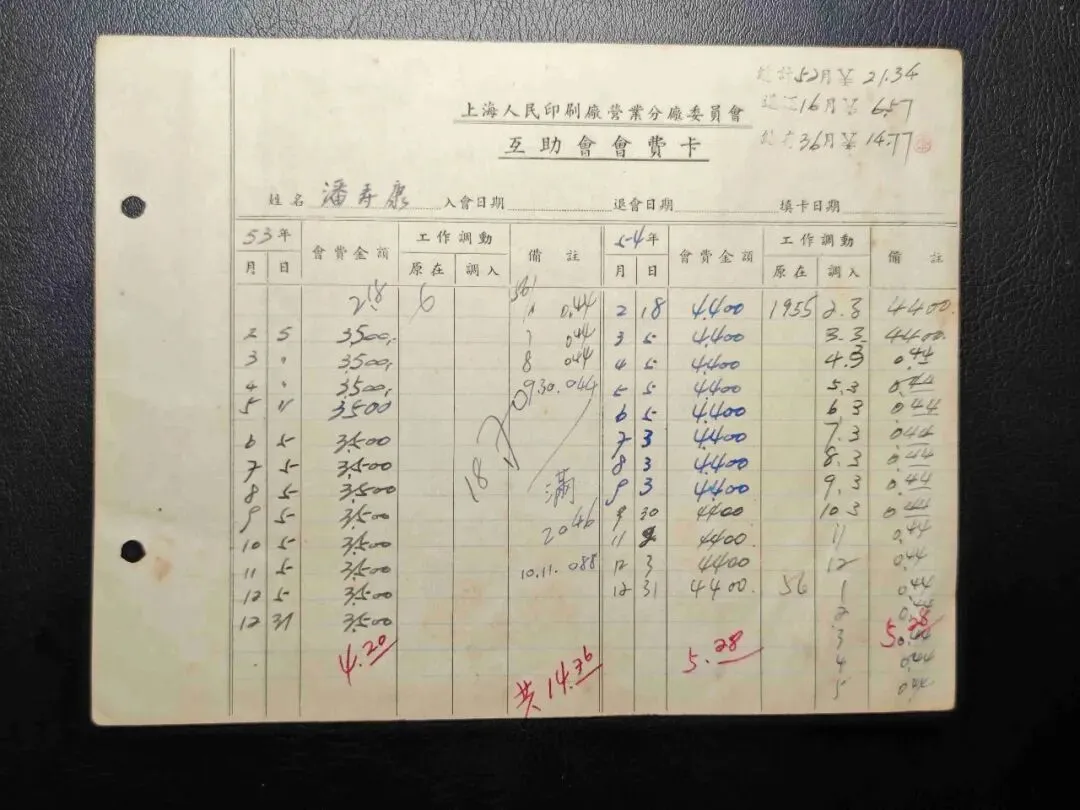 52月 21.34
16月 6.57
36月 14.77
上海人民印刷廠營業分廠委員會
互助會會費卡
姓名 潘寿康 入會日期 退會日期 填卡日期
53年 會費金額 工作調動 備註 54年 會費金額 工作調動 備註
月 日 原在 調入 月 日 原在 調入
0.44 2 18 4.400 1955 2.3 4400.
2 5 3.500, 7 044 3 5 4.400 3.3 4400.
3 〃 3.500, 8 044 4 5 4.400 4.3 0.44
4 〃 3.500, 9.30. 044 5 5 4.400 5.3 0.44
5 〃 3.500 6 5 4.400 6.3 0.44
6 5 3.500 7 3 4.400 7.3 0.44
7 5 3.500 8 3 4.400 8.3 0.44
8 5 3.500 滿 9 3 4.400 9.3 0.44
9 5 3.500 9 30 4400 10.3 0.44
10 5 3.500 2046 11 4400 11 0.44
11 5 3.500 10.11. 088 12 3 4400 12 0.44
12 5 3.500 12 31 4400. 56 1 0.44
12 31 3.500 2
4.20 5.28 3 5.28
共14.76 4 0.44
5 0.44